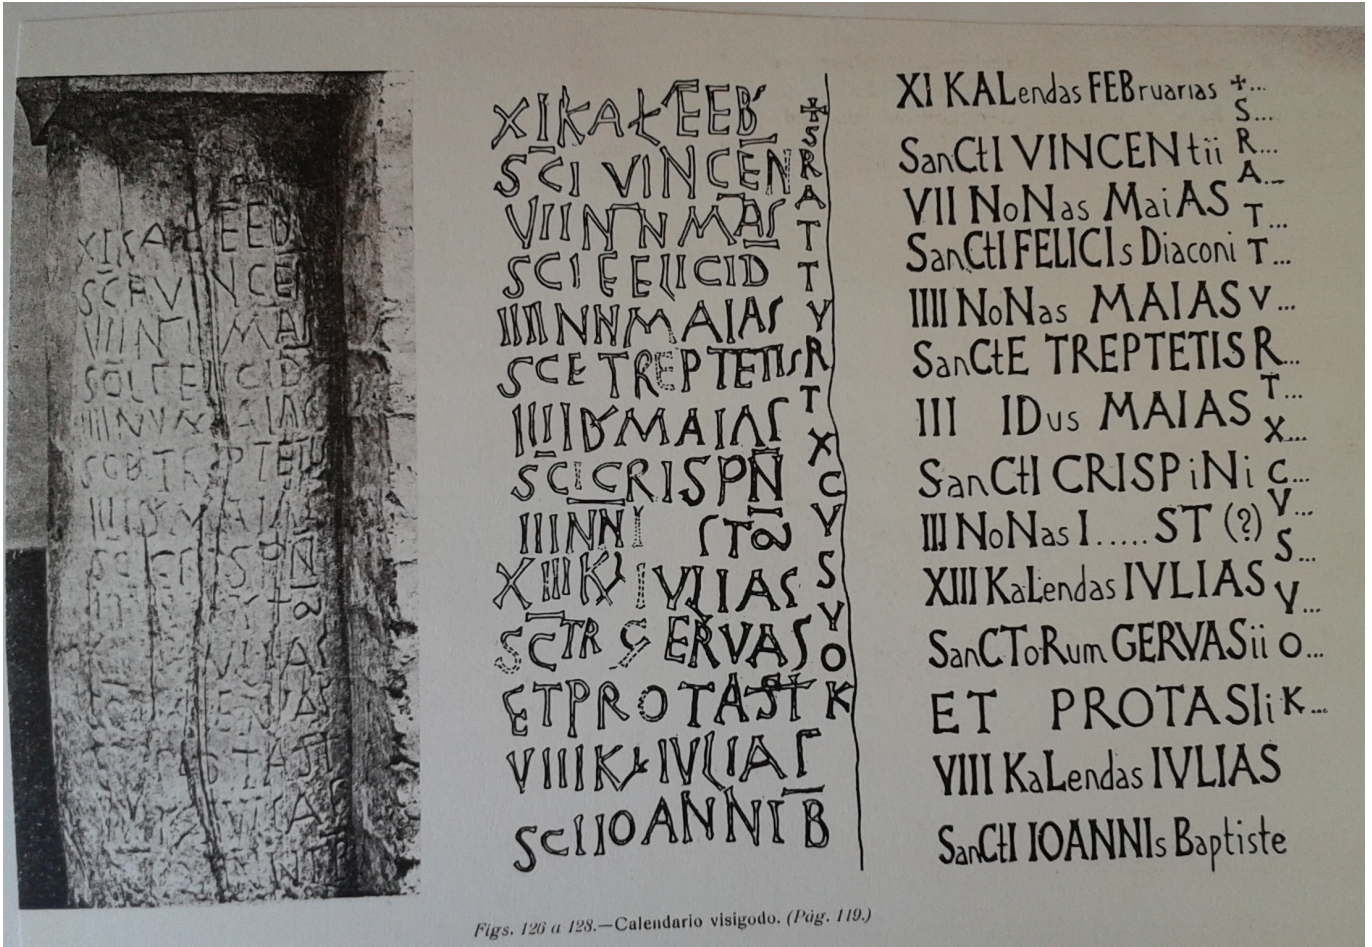 XIKAŁEEB
SCI VINCEN
VIINNMAS
SCI EELICID
IIIINNMAIAS
SCE TREPTETIS
IIIIDMAIAS
SCICRISPN
IIINNI ST
XIIIK IVLIAS
SCTR GERVAS
ETPROTAST
VIIIIK IVLIAS
SCIIOANNI B
✠
S
R
A
T
T
V
R
T
X
C
V
S
V
O
K
XI KALendas FEBruarias
SanCtI VINCENtii
VII NoNas MaiAS
SanCtI FELICIs Diaconi
IIII NoNas MAIAS
SanCtE TREPTETIS
III IDus MAIAS
SanCtI CRISPiNi
III NoNas I.....ST (?)
XIII KaLendas IVLIAS
SanCToRum GERVASii
ET PROTASIi
VIII KaLendas IVLIAS
SanCtI IOANNIs Baptiste
+...
S...
R...
A...
T...
T...
V...
R...
T...
X...
C...
V...
S...
V...
O...
K...
Figs. 126 a 128.—Calendario visigodo. (Pág. 119.)